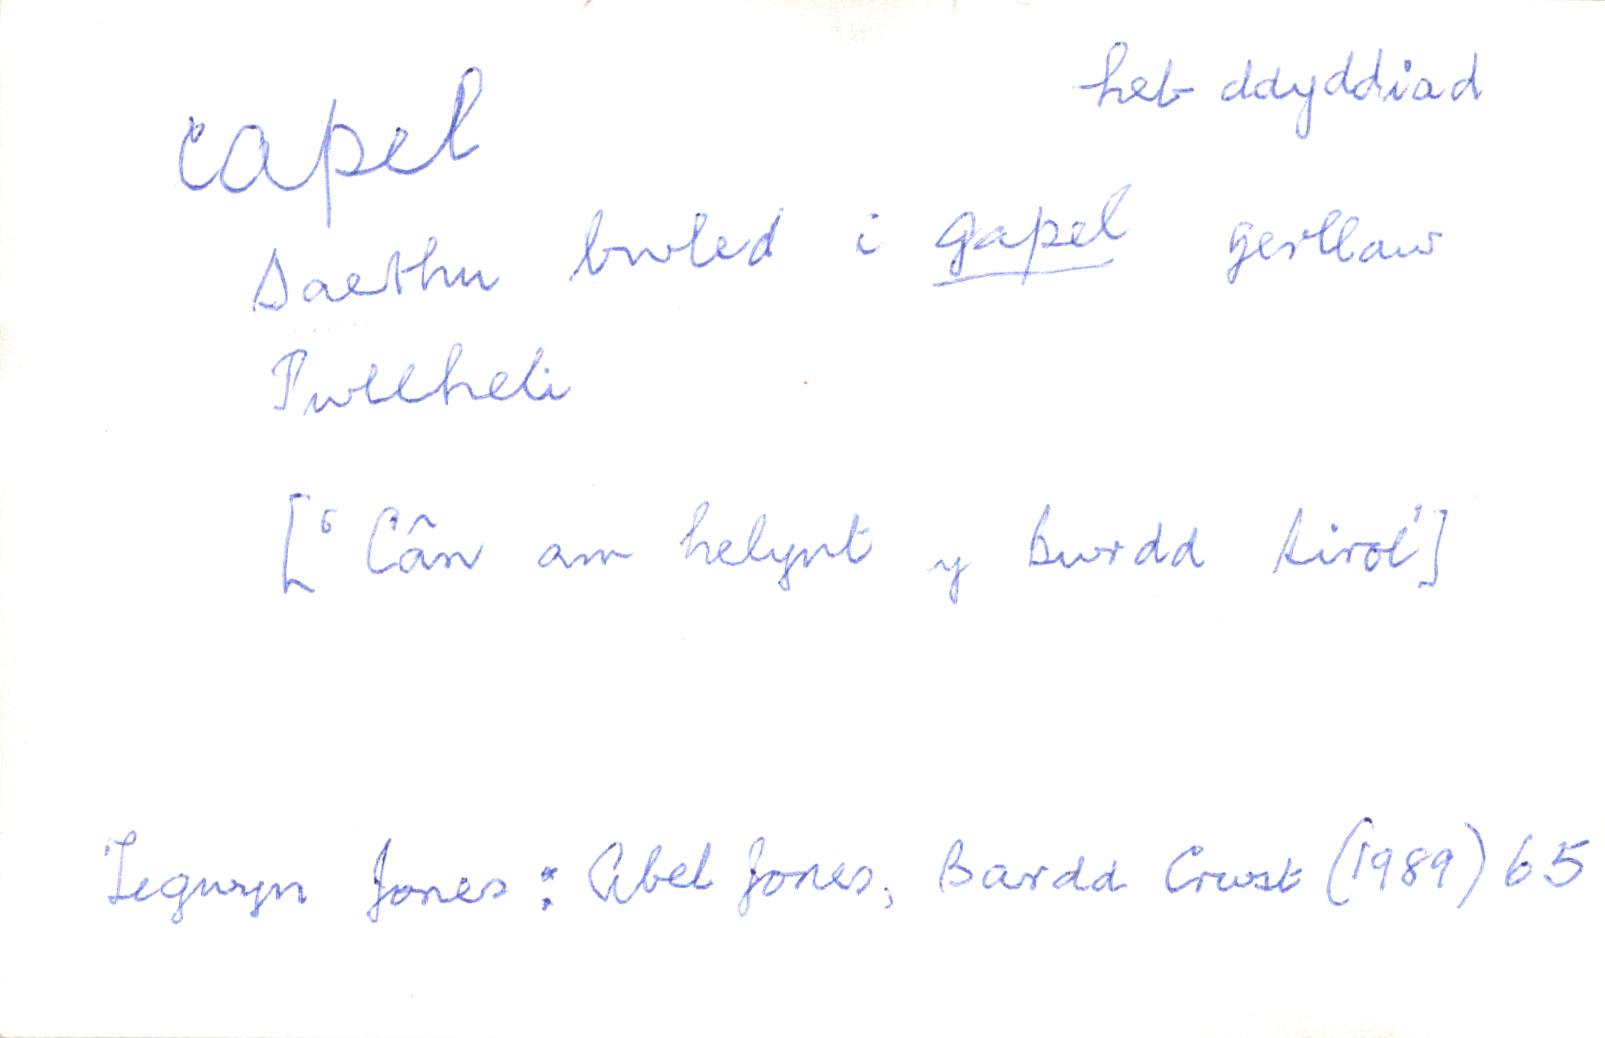 heb ddyddiad
capel
Saethu bwled i gapel gerllaw
Pwllheli
['Cân am helynt y bwrdd lirol']
Tegwyn Jones: Abel Jones, Bardd Crwst (1989) 65